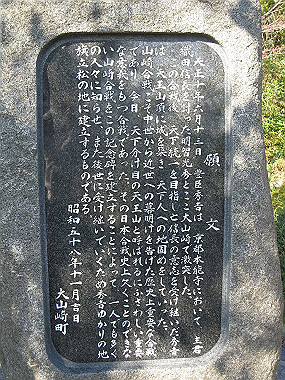 願文
天正十年六月十三日、豊臣秀吉は、京都本能寺において、主君
織田信長を討った明智光秀とここ大山崎で激突した。
この合戦後、天下統一を目指し亡信長の意志を受け継いだ秀吉
は、天王山頂に城を築き、天下人への地固めをしていった。
山崎合戦こそ中世から近世への幕明けを告げた歴史上重要な合戦
であり、今日、天下分け目の天王山と呼ばれるにふさわしい重要
な意義をもつ合戦であった。その日本合戦史上久くことのできな
い山崎合戦をこの記念碑を建立することによって、一人でも多く
の人々に知らせ、また後世に受け継いでいくため秀吉ゆかりの地
旗立松の地に建立するものである。
昭和五十八年十一月吉日
大山崎町